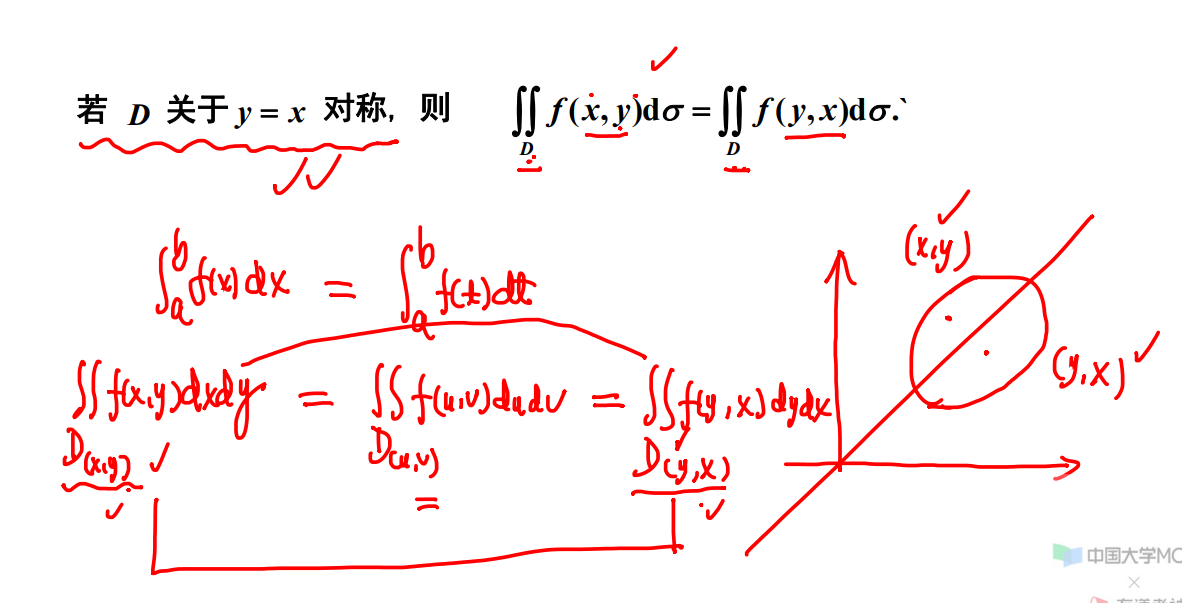 若 D 关于 y = x 对称，则 ∬_D f(x, y)dσ = ∬_D f(y, x)dσ.`
∫_a^b f(x)dx = ∫_a^b f(t)dt
∬_{D(x,y)} f(x,y)dxdy = ∬_{D(u,v)} f(u,v)dudv = ∬_{D(y,x)} f(y,x)dydx
(x,y)
(y,x)
中国大学MO